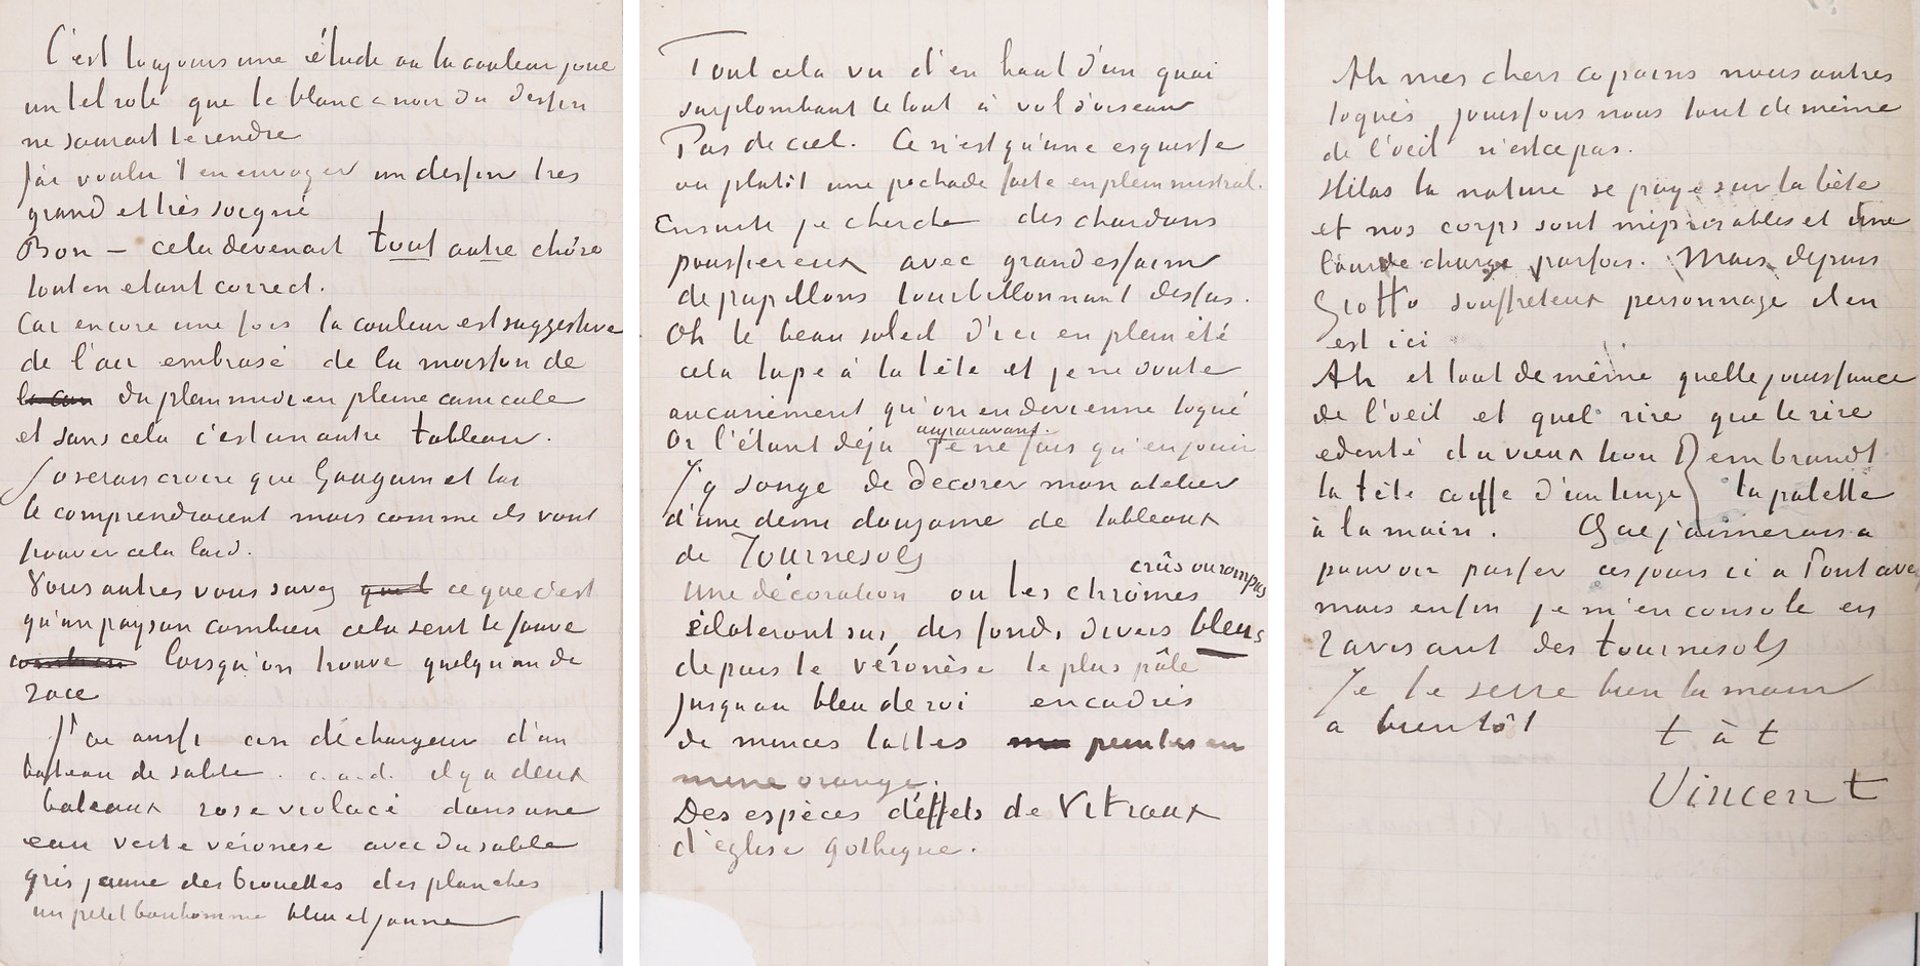 C'est toujours une étude où la couleur joue
un tel role que le blanc & noir du dessin
ne saurait le rendre
J'ai voulu t'en envoyer un dessin tres
grand et très soigné
Bon – cela devenait tout autre chôse
tout en etant correct.
Car encore une fois la couleur est suggestive
de l'air embrasé de la moisson de
du plein midi en pleine canicule
et sans cela c'est un autre tableau.
J'oserais croire que Gauguin et toi
le comprendraient mais comme ils vont
trouver cela laid.
Vous autres vous savez ce que c'est
qu'un paysan combien cela sent le fauve
lorsqu'on trouve quelqu'un de
race
J'ai aussi un déchargeur d'un
bateau de sable. c.a.d. il y a deux
bateaux rose violacé dans une
eau verte véronèse avec du sable
gris jaune des brouettes des planches
un petit bonhomme bleu et jaune
Tout cela vu d'en haut d'un quai
surplombant le tout à vol d'oiseau
Pas de ciel. Ce n'est qu'une esquisse
ou plutôt une pochade faite en plein mistral.
Ensuite je cherche des chardons
poussiereux avec grand essaim
de papillons tourbillonnant dessus.
Oh le beau soleil d'ici en plein été
cela tape à la tête et je ne doute
aucunement qu'on en devienne toqué
Or l'étant déjà auparavant. je ne fais qu'en jouir
J'y songe de décorer mon atelier
d'une demi douzaine de tableaux
de Tournesols
Une décoration où les chrômes crûs ou rompus
éclateront sur des fonds divers bleus
depuis le véronèse le plus pâle
jusqu'au bleu de roi encadrés
de minces lattes peintes en
mine orange.
Des espèces d'éffets de Vitraux
d'église gothique.
Ah mes chers copains nous autres
toqués jouissons nous tout de même
de l'oeil n'est ce pas.
Hélas la nature se paye sur la bête
et nos corps sont méprisables et une
lourde charge parfois. Mais depuis
Giotto souffreteux personnage il en
est ici
Ah et tout de même quelle jouissance
de l'oeil et quel rire que le rire
edenté du vieux lion Rembrandt
la tête coiffe d'un linge la palette
à la main. Que j'aimerais à
pouvoir passer ces jours ci à Pont aven
mais enfin je m'en console en
ravisant des tournesols
Je te serre bien la main
a bientôt t à t
Vincent